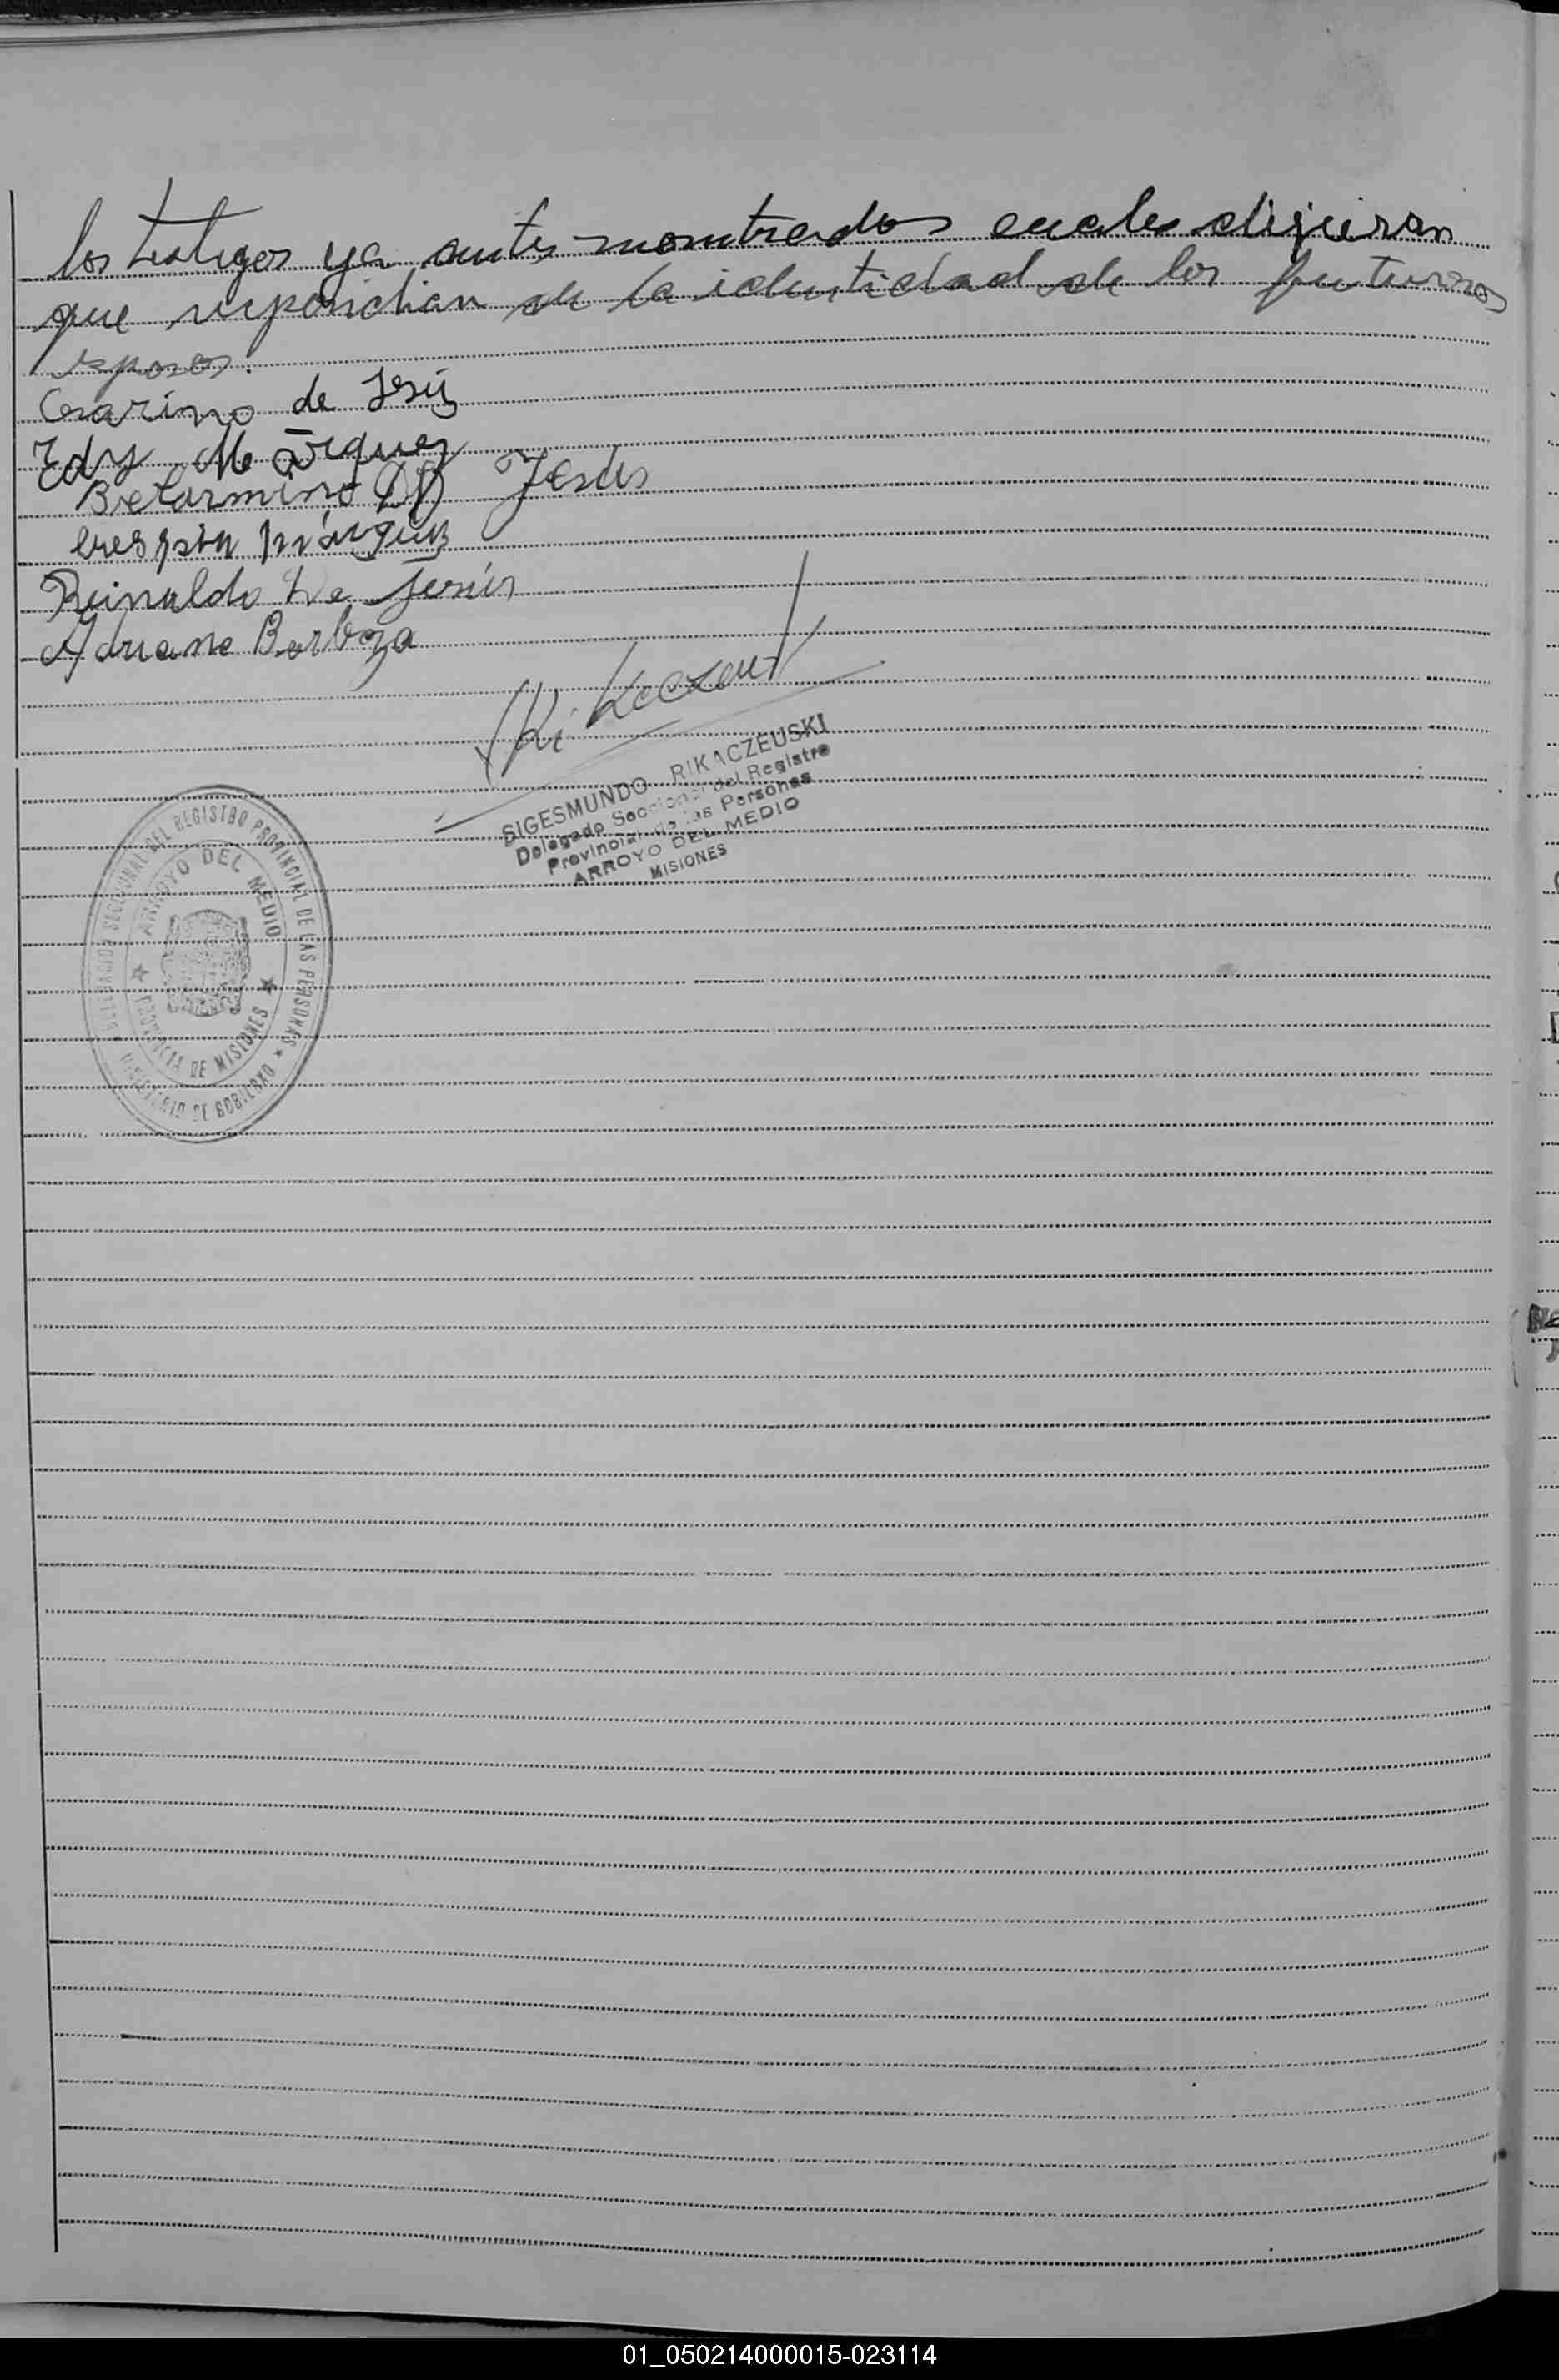 los testigos ya antes nombrados cuales dijieron
que respondian de la identidad de los futuros
esposos.
Cesarino de Jesús
Edy Márquez
Belarmino De Jesús
Crespin Márquez
Reinaldo De Jesús
Adriane Barboza
SIGESMUNDO RIKACZEUSKI
Delegado Seccional del Registro
Provincial de las Personas
ARROYO DEL MEDIO
MISIONES
DELEGACION SECCIONAL DEL REGISTRO PROVINCIAL DE LAS PERSONAS
★ MINISTERIO DE GOBIERNO ★
ARROYO DEL MEDIO
★ PROVINCIA DE MISIONES ★
01_050214000015-023114